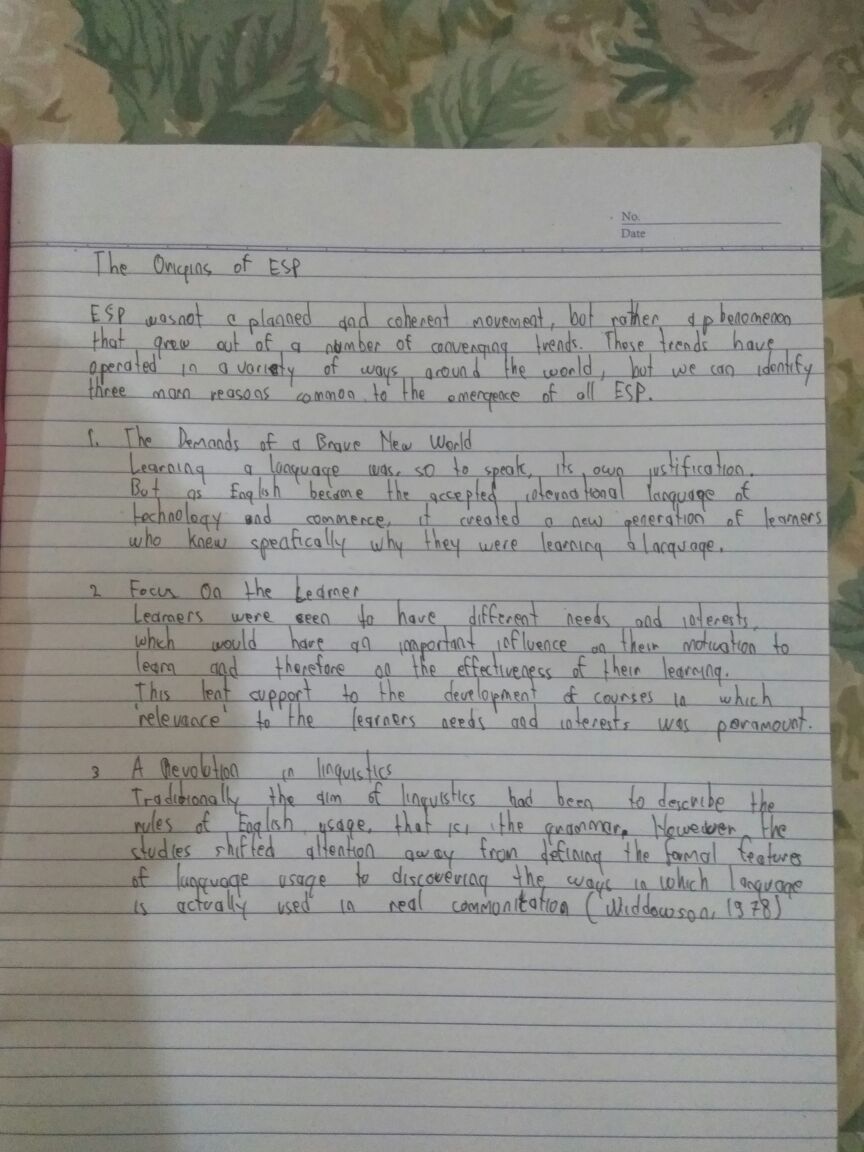 No.
Date
The Origins of ESP
ESP was not a planned and coherent movement, but rather a phenomenon
that grew out of a number of converging trends. These trends have
operated in a variety of ways around the world, but we can identify
three main reasons common to the emergence of all ESP.
1. The Demands of a Brave New World
Learning a language was, so to speak, its own justification.
But as English become the accepted international language of
technology and commerce, it created a new generation of learners
who knew specifically why they were learning a language.
2 Focus On the Learner
Learners were seen to have different needs and interests,
which would have an important influence on their motivation to
learn and therefore on the effectiveness of their learning.
This lent support to the development of courses in which
'relevance' to the learners needs and interests was paramount.
3 A Revolution in linguistics
Traditionally the aim of linguistics had been to describe the
rules of English usage, that is, the grammar. However, the
studies shifted attention away from defining the formal features
of language usage to discovering the ways in which language
is actually used in real communitation (Widdowson, 1978)